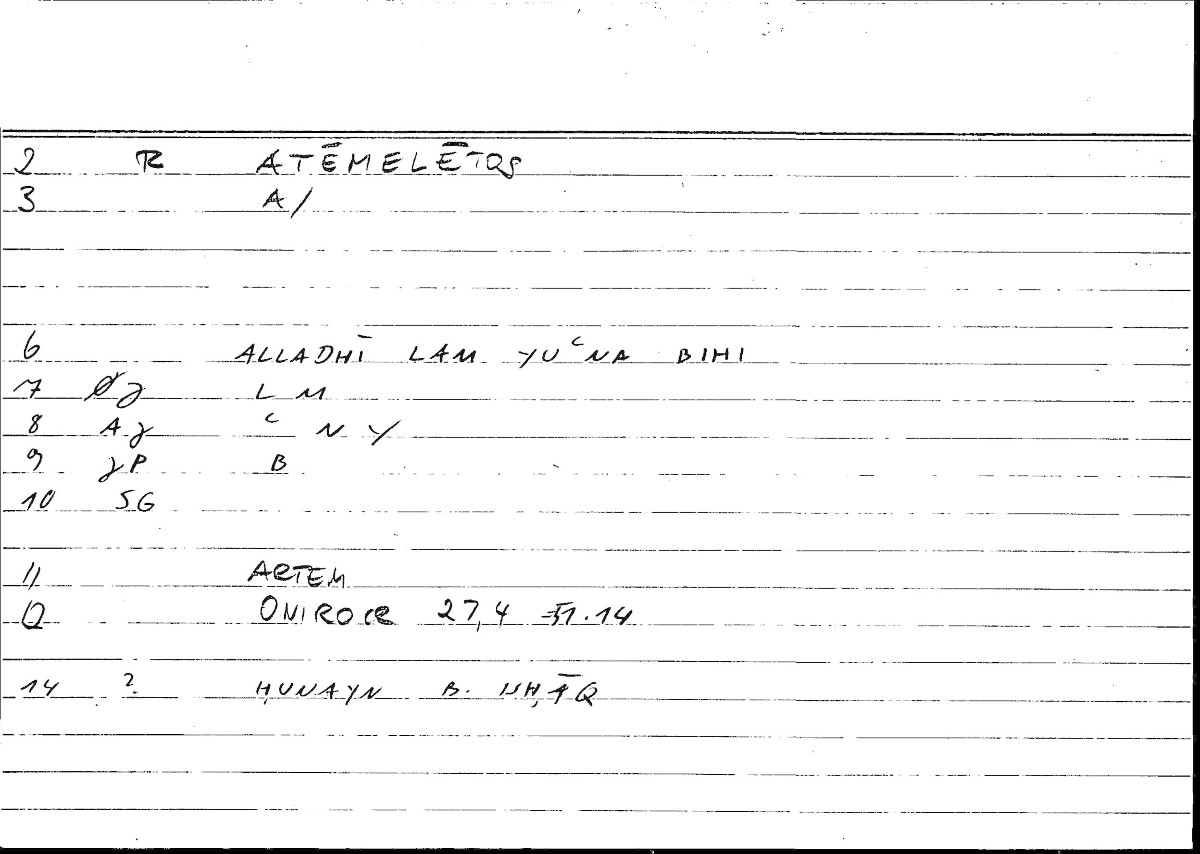 2 R ATĒMELĒTOS
3 A/
6 ALLADHĪ LAM YUʿNA BIHI
7 L M
8 ʿ N Y
9 B
10 SG
11 ARTEM
12 ONIROCR 27,4 51.14
14 ? ḤUNAYN B. ISḤĀQ